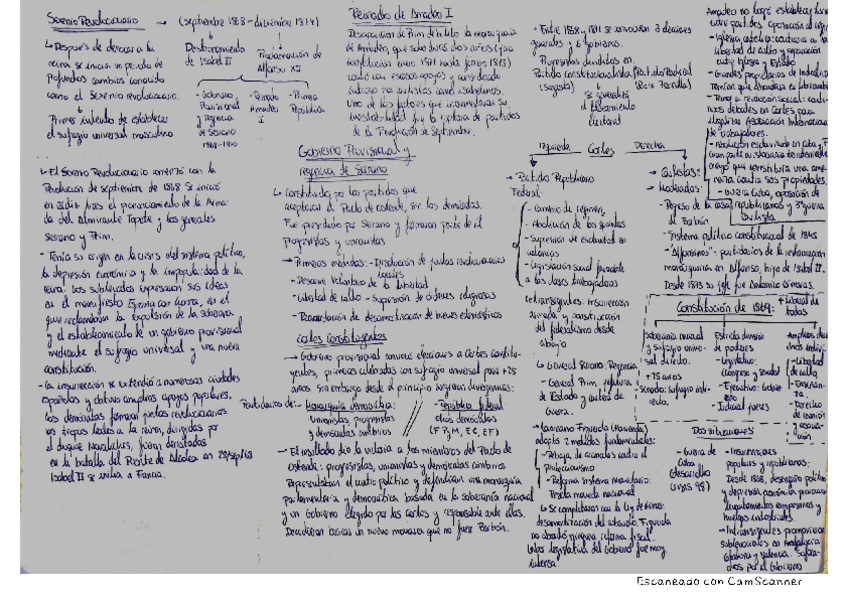 Sexenio Revolucionario → (septiembre 1868 - diciembre 1874)
↳ Después de derrocar a la
reina se inicia un período de
profundos cambios conocido
como el Sexenio revolucionario.
Primer intento de establecer
el sufragio universal masculino
Destronamiento
de Isabel II
Proclamación de
Alfonso XII
- Gobierno
Provisional
y regencia
de Serrano
1868-1870
- Reinado
Amadeo
I
- Primera
República
↳ El Sexenio Revolucionario comenzó con la
Revolución de septiembre de 1868. Se inició
en Cádiz tras el pronunciamiento de la Arma-
da del Almirante Topete y los generales
Serrano y Prim.
- Tenía su origen en la crisis del sistema político,
la depresión económica y la impopularidad de la
reina. Los sublevados expresaron sus ideas
en el manifiesto España con honra, en el
que reclamaban la expulsión de la soberana
y el establecimiento de un gobierno provisional
mediante el sufragio universal y una nueva
constitución.
- La insurrección se extendió a numerosas ciudades
españolas y obtuvo amplios apoyos populares.
Los demócratas formaron juntas revolucionarias.
Las tropas leales a la reina, dirigidas por
el duque Novaliches, fueron derrotadas
en la batalla del Puente de Alcolea en 28/sep/68
Isabel II se exilia a Francia.
Reinado de Amadeo I
Designación de Prim de
de Amadeo, que sólo duró dos años
1871 hasta 1873)
contó con escasos apoyos y
Uno de los factores que
inestabilidad fue la ruptura de partidos
de la Revolución de Septiembre.
Gobierno Provisional y
regencia de Serrano
↳ Constituido por los partidos que
aceptaron el Pacto de Ostende, sin los demócratas.
Fue presidido por Serrano y formaron parte de él
progresistas y unionistas
→ Primeras medidas: - Disolución de juntas revolucionarias
locales
- Desarme Voluntarios de la Libertad
- Libertad de culto - Supresión de órdenes religiosas
- Reanudación de desamortización de bienes eclesiásticos
Cortes Constituyentes
→ Gobierno provisional convocó elecciones a Cortes constitu-
yentes, primeras celebradas con sufragio universal para +25
años. Sin embargo desde el principio surgieron divergencias:
Partidarios de: - Monarquía democrática:
unionistas, progresistas
y demócratas cimbrios
- República federal
otros demócratas
(F P y M, EC, EF)
- El resultado dio la victoria a los miembros del Pacto de
Ostende: progresistas, unionistas y demócratas cimbrios
Representaban el centro político y defendían una monarquía
parlamentaria y democrática basada en la soberanía nacional
y un Gobierno elegido por las Cortes y responsable ante ellas.
Decidieron buscar un nuevo monarca que no fuese Borbón.
- Entre 1868 y 1871 se convocaron 3 elecciones
generales y 6 gobiernos.
Progresistas divididos en
Partido constitucionalista
(Sagasta)
Partido Radical
(Ruiz Zorrilla)
↳ Se generalizó
el falseamiento
electoral
Izquierda
Cortes
Derecha
→ Partido Republicano
Federal
- Cambio de régimen
- Abolición de las quintas
- Supresión de esclavitud en
colonias
- Legislación social favorable
a las clases trabajadoras
Intransigentes: insurrección
armada y construcción
del federalismo desde
abajo
→ Carlistas:
→ Moderados:
- Regreso de la casa
de Borbón
- Sistema político constitucional de 1845
- "Alfonsinos": partidarios de la restauración
monárquica en Alfonso, hijo de Isabel II.
Desde 1873 su jefe fue Antonio Cánovas.
↳ General Serrano: Regencia
- General Prim: jefatura
de Estado y cartera de
Guerra.
↳ Laureano Figuerola (Hacienda)
adoptó 2 medidas fundamentales:
- Rebaja de aranceles contra el
proteccionismo
- Reforma sistema monetario:
Peseta moneda nacional
↳ Se completaron con la ley de minas:
desamortización del subsuelo. Figuerola
no abordó ninguna reforma fiscal.
legislativa del Gobierno fue muy
intensa
Amadeo no logró
- Iglesia católica: contraria a la
libertad de culto y separación
entre Iglesia y Estado
- Grandes propietarios de
- Temor a revolución social:
debates en Cortes para
ilegalizar Asociación Internacional
de Trabajadores.
- Abolición esclavitud en Cuba y
- Guerra Cuba, oposición de
republicanos y III guerra
carlista
Constitución de 1869:
+ Liberal de
todas
Soberanía nacional
y sufragio univer-
sal directo.
+25 años
- Senado: Sufragio indi-
recto.
Estricta división
de poderes
- Legislativo:
Congreso y senado
- Ejecutivo: Gobier-
no
- Judicial jueces
- Libertad
de culto
Derecho
de reunión
y asocia-
ción
Dos situaciones
- Guerra de
Cuba
(Desarrollo
crisis 98)
- Insurrecciones
populares y republicanas:
Desde 1868, desengaño político
y depresión económica provocaron
levantamientos campesinos y
huelgas industriales
→ Intransigentes promovieron
sublevaciones en Andalucía
Cataluña y Valencia.
por el Gobierno
Escaneado con CamScanner